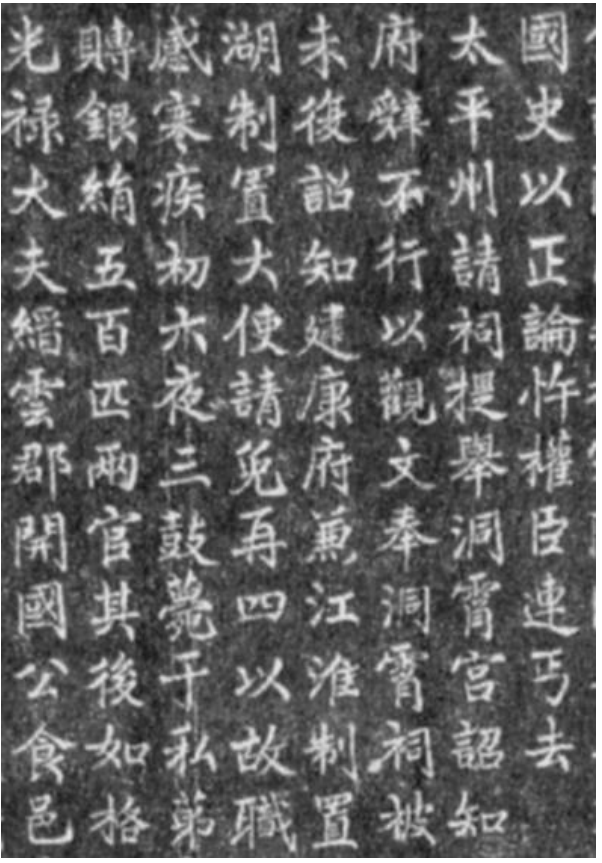 國史以正論忤權臣連丐去
太平州請祠提舉洞霄宮詔知
府辭不行以觀文奉洞霄祠被
未復詔知建康府兼江淮制置
湖制置大使請免再四以故職
感寒疾初六夜三鼓薨于私苐
賻銀絹五百匹兩官其後如格
光禄大夫縉雲郡開國公食邑